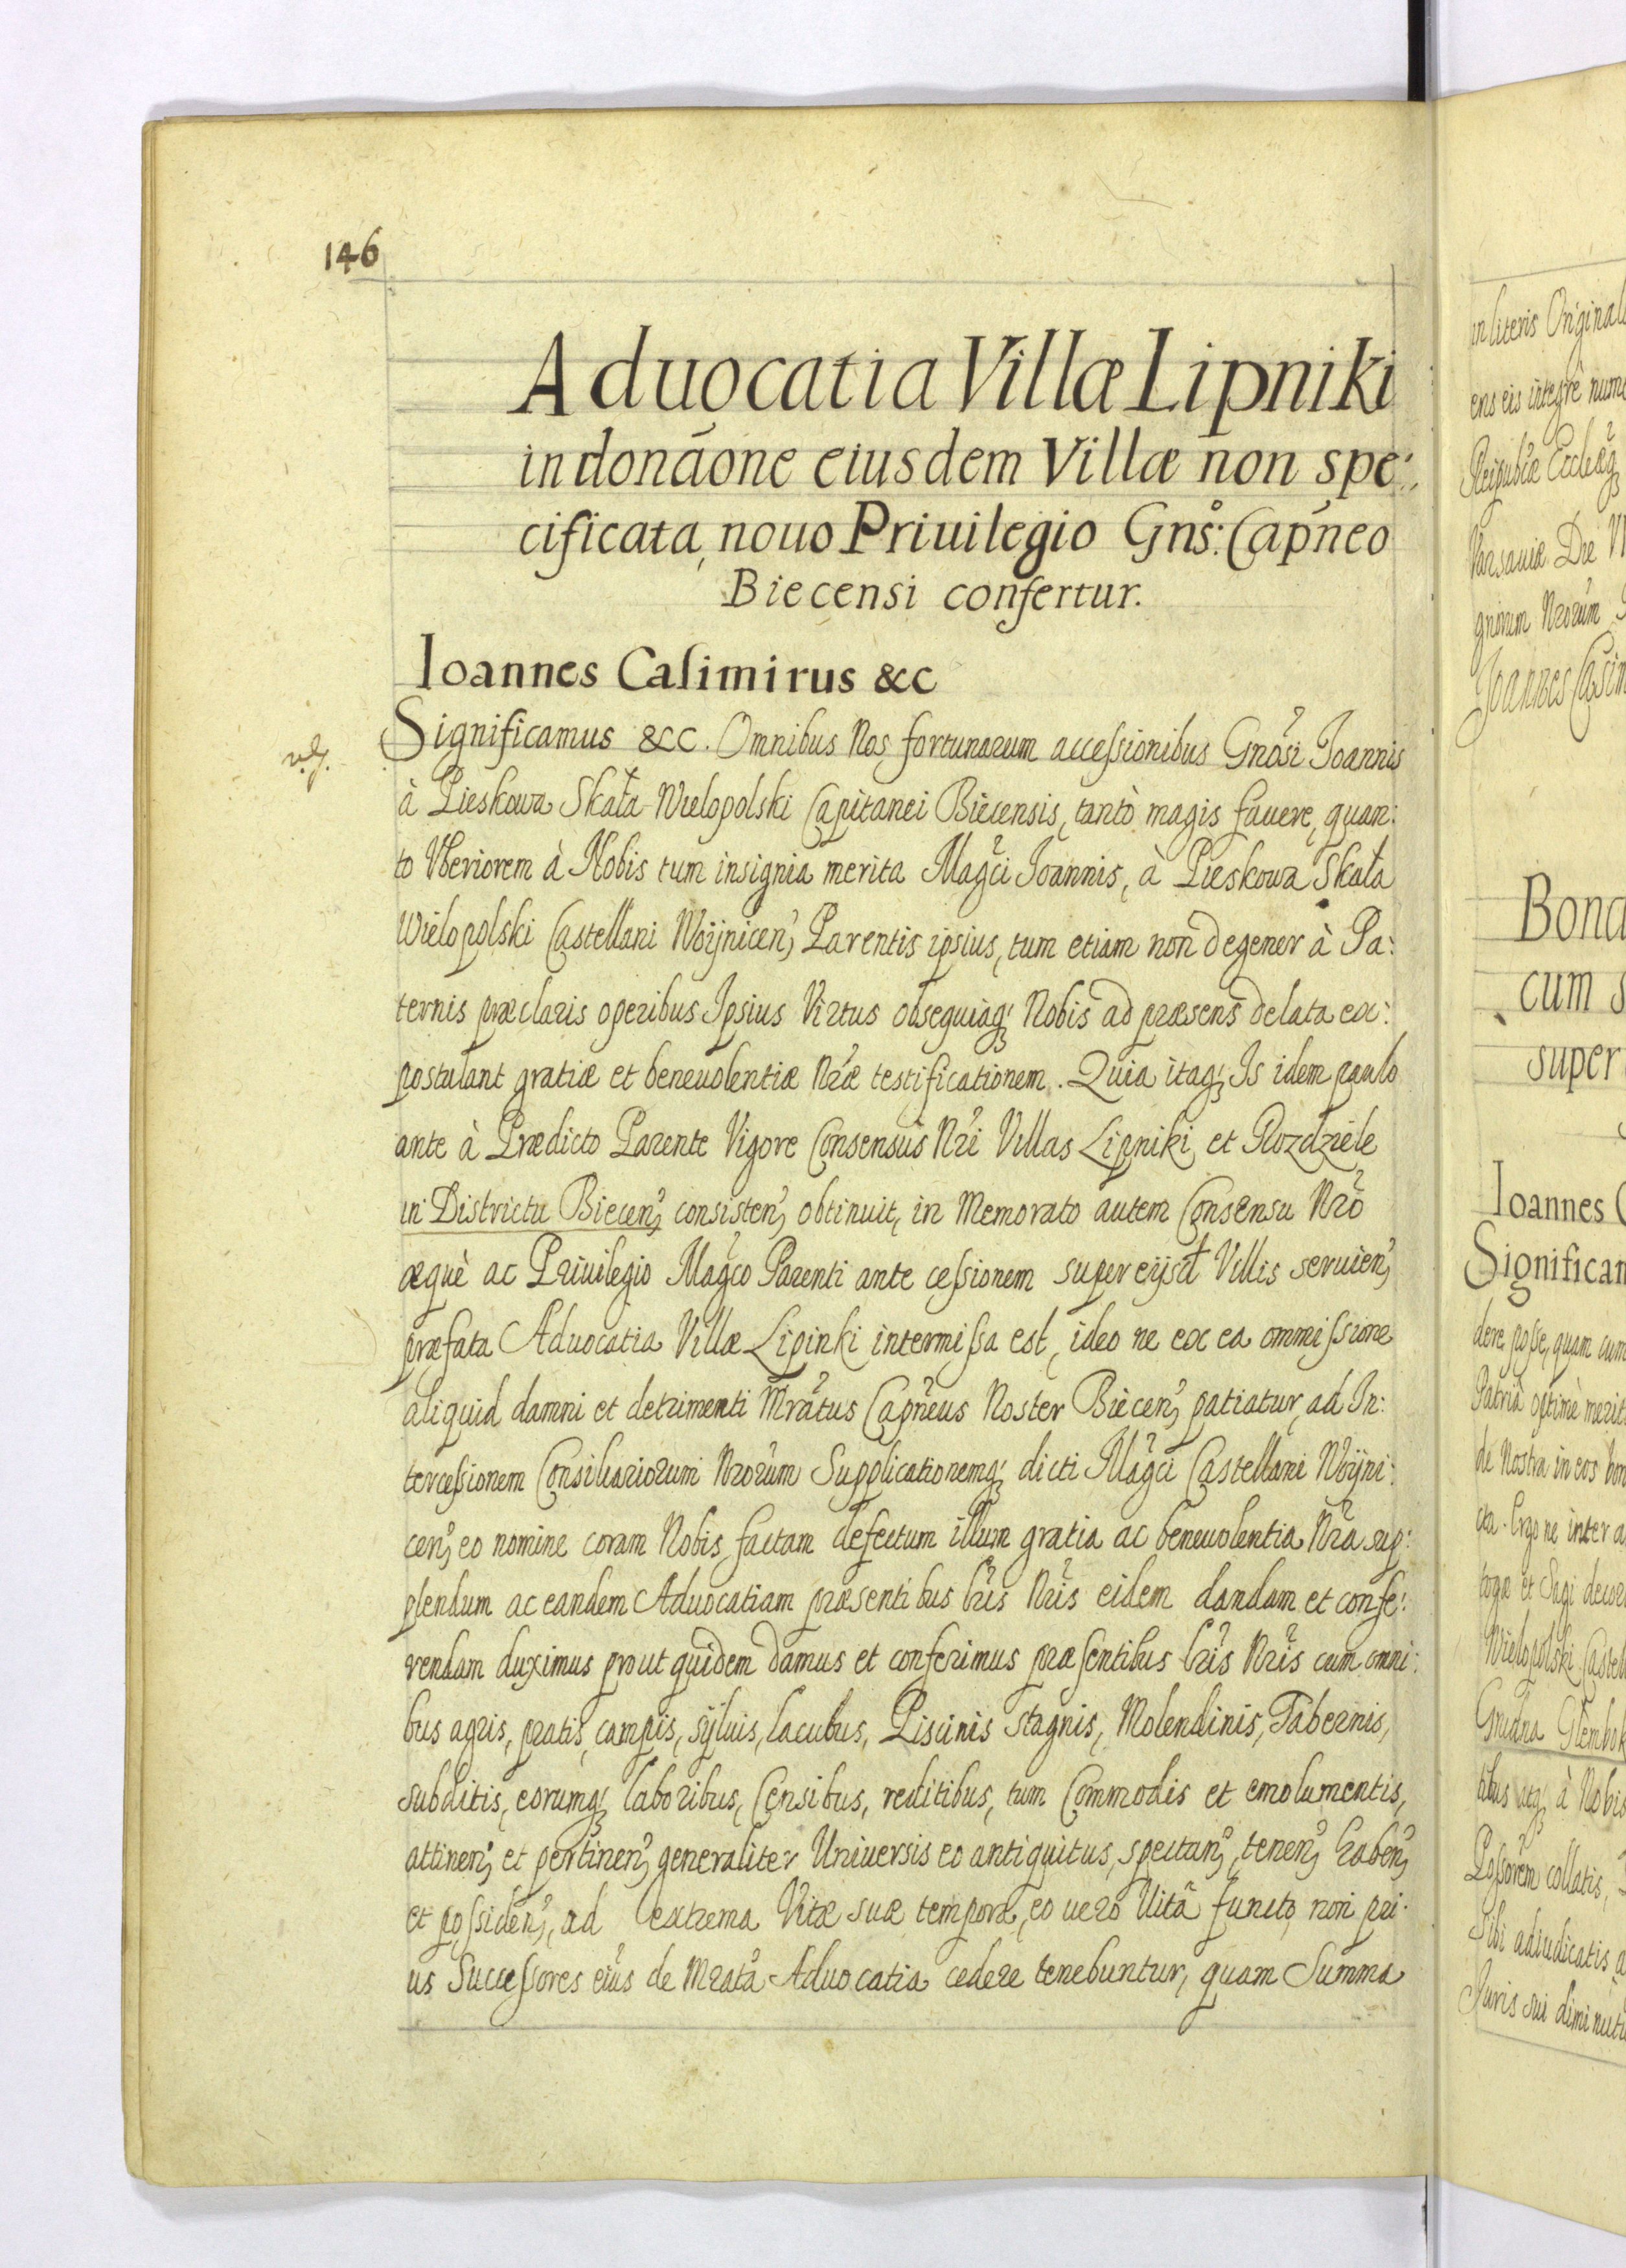 146
Aduocatia Villæ Lipniki
in donãone eiusdem Villæ non spe:
cificata, nouo Priuilegio Gns̃: Capneo
Biecensi confertur.
Ioannes Casimirus &c
Significamus &cc. Omnibus Nos fortunarum accessionibus Gnosi Joannis
à Pieskowa Skała Wielopolski Capitanei Biecensis, tantò magis fauere, quan:
to Vberiorem à Nobis tum insignia merita Magci Joannis, à Pieskowa Skała
Wielopolski Castellani Woÿnicen, Parentis ipsius, tum etiam non degener à Pa:
ternis præclaris operibus Ipsius Virtus obsequiaq; Nobis ad præsens delata ex:
postulant gratiæ et beneuolentiæ Nræ testificationem. Quia itaq; Is idem paulo
ante à Prædicto Parente Vigore Consensus Nri Villas Lipniki et Rozdziele
in Districtu Biecen, consisten, obtinuit, in Memorato autem Consensu Nro
æquè ac Priuilegio Magco Parenti ante cessionem super eijsd Villis seruien,
præfata Aduocatia Villæ Lipinki intermissa est, ideo ne ex ea ommissione
aliquid damni et detrimenti Mratus Capneus Noster Biecen, patiatur, ad In:
tercessionem Consiliariorum Nrorum Supplicationemq; dicti Magci Castellani Woÿni:
cen, eo nomine coram Nobis factam defectum illum gratia ac beneuolentia Nra sup:
plendum ac eandem Aduocatiam præsentibus lris Nris eidem dandam et confe:
rendam duximus prout quidem damus et conferimus præsentibus lris Nris cum omni:
bus agris, pratis, campis, syluis, lacubus, Piscinis stagnis, Molendinis, Tabernis,
subditis, eorumq; laboribus, Censibus, reditibus, tum Commodis et emolumentis,
attinen, et pertinen, generaliter Uniuersis eo antiquitus, spectan, tenen, haben,
et possiden, ad extrema Vitæ suæ tempora, eo uero Uitâ functo non pri:
us Successores eius de Mrata Aduocatia cedere tenebuntur, quam Summa
in literis Original
ens eis integrè
Reipubcæ
Varsauiæ Die
gnorum Nrorum
Joannes Casim
Bona
cum s
super
Ioannes C
Significam
dere posse, quam cum
Patria optimè merit
de Nostra in eos
Ergo ne inter a
togæ et Sagi decor
Wielopolski Castell
Glembok
à Nobis
Possorem collatis,
Sibi adiudicatis a
Juris sui diminuti